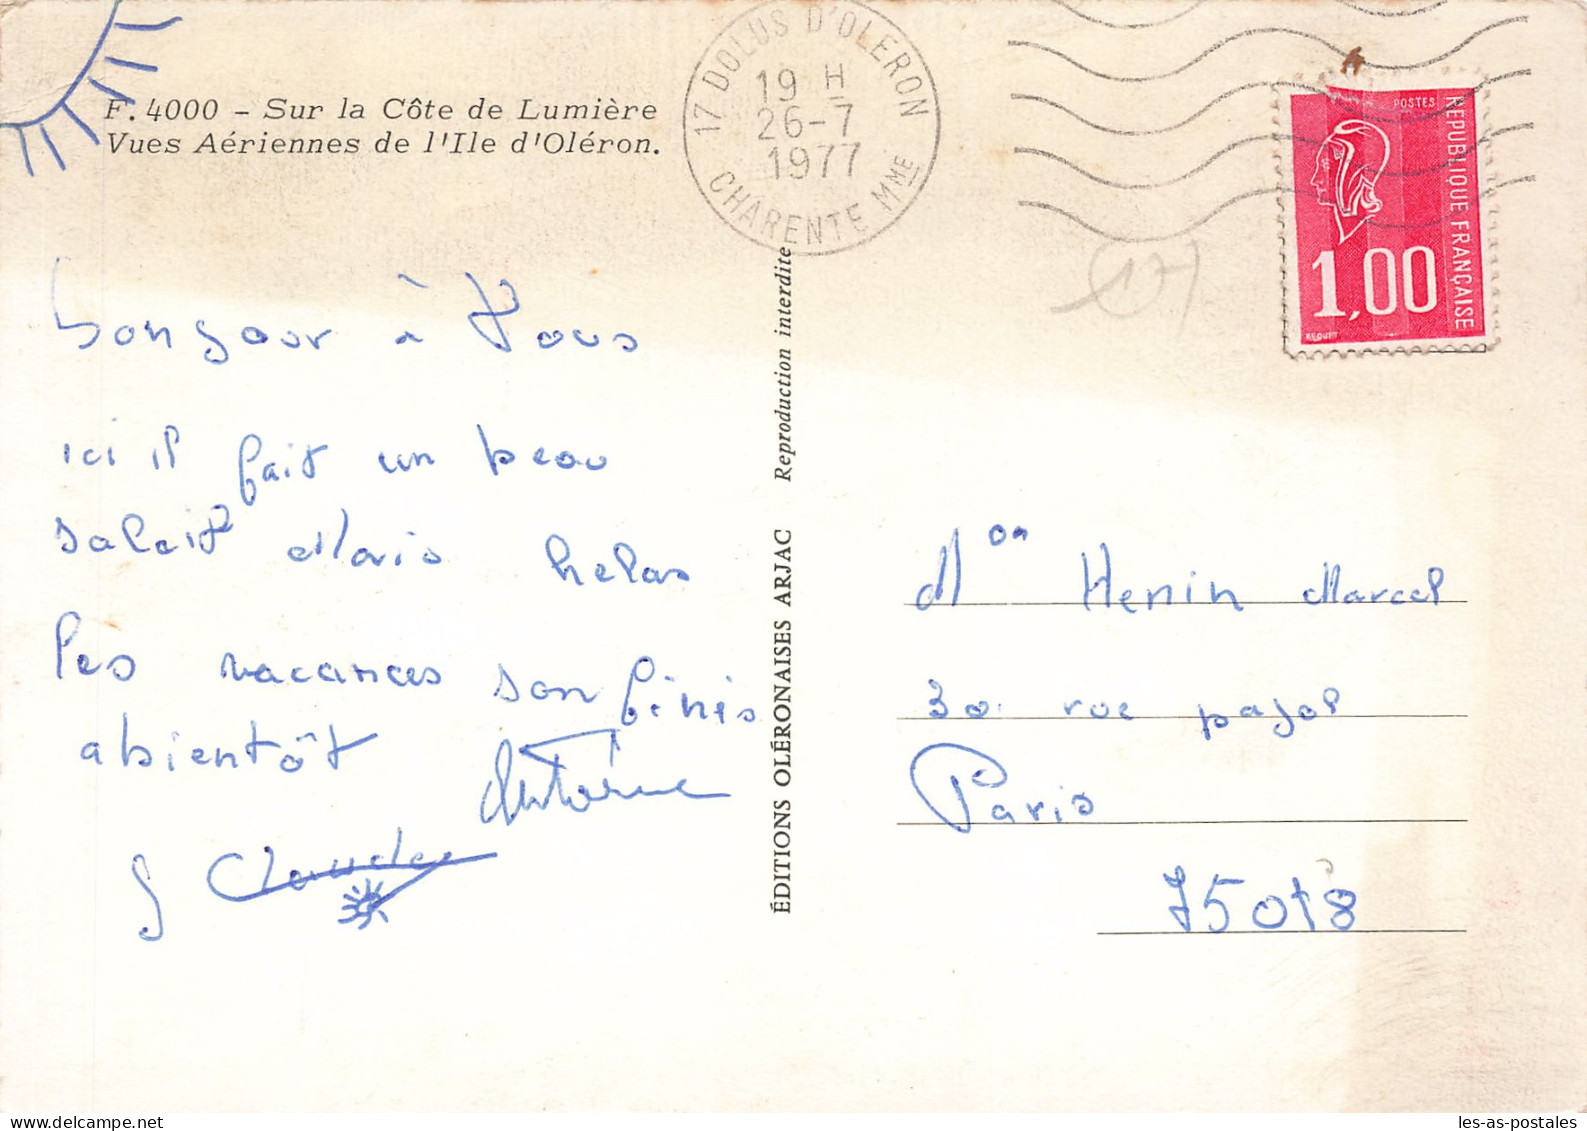 F. 4000 – Sur la Côte de Lumière
Vues Aériennes de l'Ile d'Oléron.
17 DOLUS D'OLERON
19 H
26-7
1977
CHARENTE MME
POSTES
REPUBLIQUE FRANÇAISE
1,00
BEQUET
(17)
bonjour à Vous
ici il fait un beau
saleit Mais helas
les vacances son finis
abientôt
Antoine
Claude
Reproduction interdite
ÉDITIONS OLÉRONAISES ARJAC
Mon Henin Marcel
30 rue pajol
Paris
75018
les-as-postales
delcampe.net